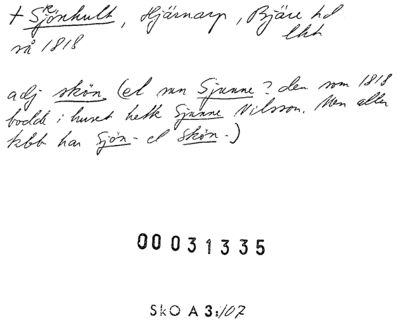 + Sjönhult, Hjärnarp, Bjäre hd
så 1818 lht
adj skön (el mn Sjunne? den som 1818
bodde i huset hette Sjunne Nilsson. Men alla
kbb har Sjön- el Skön-.)
00031335
SkO A 3:107